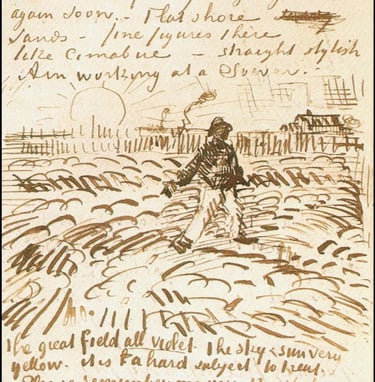 again soon. – Flat shore
sands – fine figures there
like Cimabue – straight stylish
Am working at a Sower.
the great field all violet. the sky & sun very
yellow. it is a hard subject to treat.
Please remember me